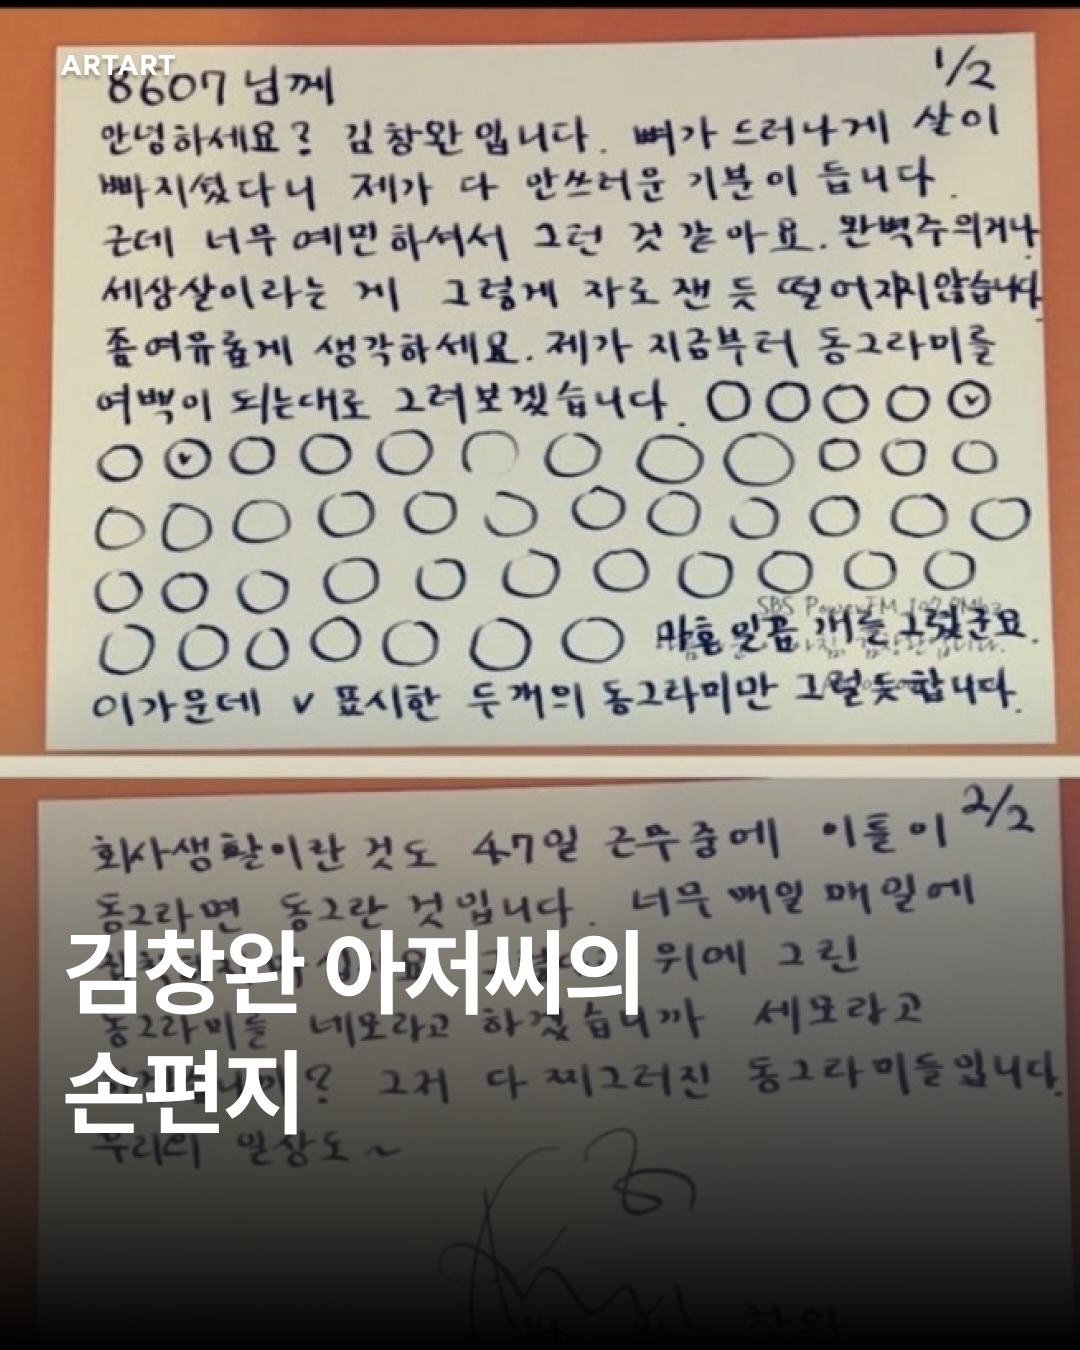 ARTART
8607님께
1/2
안녕하세요? 김창완입니다. 뼈가 드러나게 살이
빠지셨다니 제가 다 안쓰러운 기분이 듭니다.
근데 너무 예민하셔서 그런 것 같아요. 완벽주의거나.
세상살이라는 게 그렇게 자로 잰 듯 떨어지지 않습니다.
좀 여유롭게 생각하세요. 제가 지금부터 동그라미를
여백이 되는대로 그려보겠습니다.
SBS PowerFM 107.7Mhz
마흔 일곱 개를 그렸군요.
이 가운데 V 표시한 두 개의 동그라미만 그럴듯합니다.
2/2
회사생활이란 것도 47일 근무 중에 이틀이
동그라면 동그란 것입니다. 너무 매일 매일에
위에 그린
동그라미를 네모라고 하겠습니까 세모라고
그저 다 찌그러진 동그라미들입니다.
우리의 일상도~
김창완 아저씨의
손편지